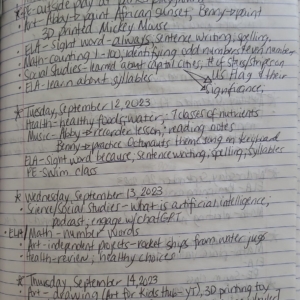 PE-outside play at park
Art-Abby-paint African sunset, Benny-paint
3D printed Mickey Mouse
ELA-sight word-always, sentence writing, spelling,
Math-counting 1-100, identifying odd numbers & even numbers
Social Studies-learned about capital cities, # of stars/stripes on
ELA-learn about syllables US Flag & their
significance,
* Tuesday, September 12, 2023
Health-healthy foods, water, 7 classes of nutrients
Music-Abby-recorder lesson, reading notes
Benny-practice Octonauts theme song on keyboard
ELA-sight word because, sentence writing, spelling, syllables
PE-Swim class
* Wednesday, September 13, 2023
• Science/Social Studies-what is artificial intelligence,
podcast, engage w/chatGPT
• ELA/Math-number words
• Art-independent projects-rocket ships from water jugs
• Health-review, healthy choices
* Thursday, September 14, 2023
• Art-drawing (Art for Kids Hub-YT), 3D printing toy